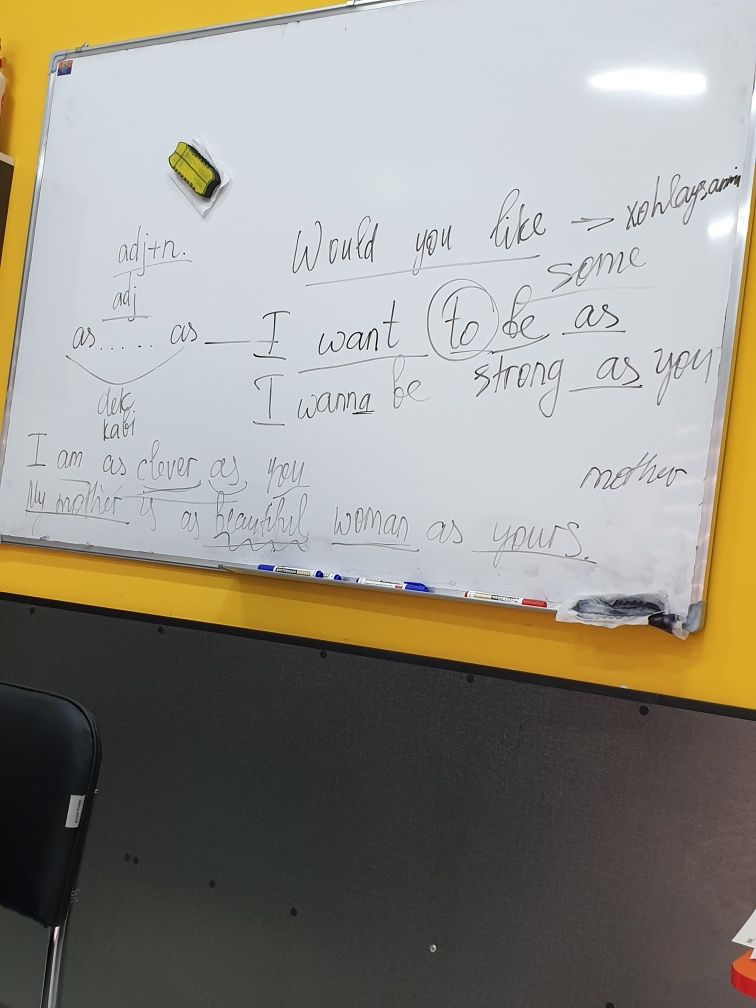 adj+n.
adj
as ..... as
dek,
kabi
Would you like → xohlaysanmi
some
I want to be as
strong as you
I wanna be
I am as clever as you
My mother is as beautiful woman as yours.
mother